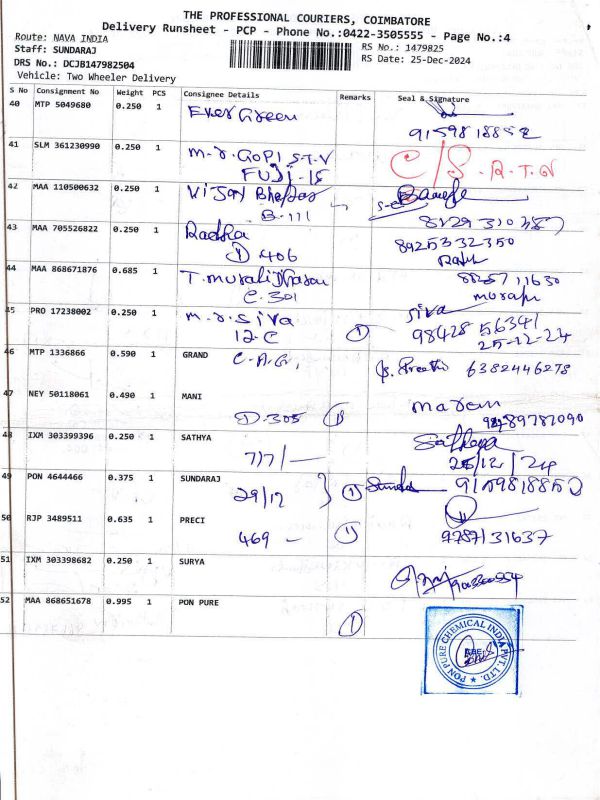 THE PROFESSIONAL COURIERS, COIMBATORE
Delivery Runsheet - PCP - Phone No.:0422-3505555 - Page No.:4
Route: NAVA INDIA
RS No.: 1479825
Staff: SUNDARAJ
RS Date: 25-Dec-2024
DRS No.: DCJB147982504
Vehicle: Two Wheeler Delivery
S No Consignment No Weight PCS Consignee Details Remarks Seal & Signature
40 MTP 5049680 0.250 1 Ever Green
9159818852
41 SLM 361230990 0.250 1 M.r. GOPI S.T.V C/S. R.T.N
FUJI-18
42 MAA 110500632 0.250 1 Vijay
B-111
43 MAA 705526822 0.250 1 Radha 8925332350
D 406
44 MAA 868671876 0.685 1 T. Murali
C-301
45 PRO 17238002 0.250 1 M.r. Siva Siva
12 C 1 98428 56341
25-12-24
46 MTP 1336866 0.590 1 GRAND C.A.G, 6382446278
47 NEY 50118061 0.490 1 MANI
D-305
48 IXM 303399396 0.250 1 SATHYA Sathya
717/— 25/12/24
49 PON 4644466 0.375 1 SUNDARAJ 9159818850
29/12 1
50 RJP 3489511 0.635 1 PRECI
469 — 1 9787131637
51 IXM 303398682 0.250 1 SURYA
52 MAA 868651678 0.995 1 PON PURE
1
PON PURE CHEMICAL INDIA PVT. LTD.